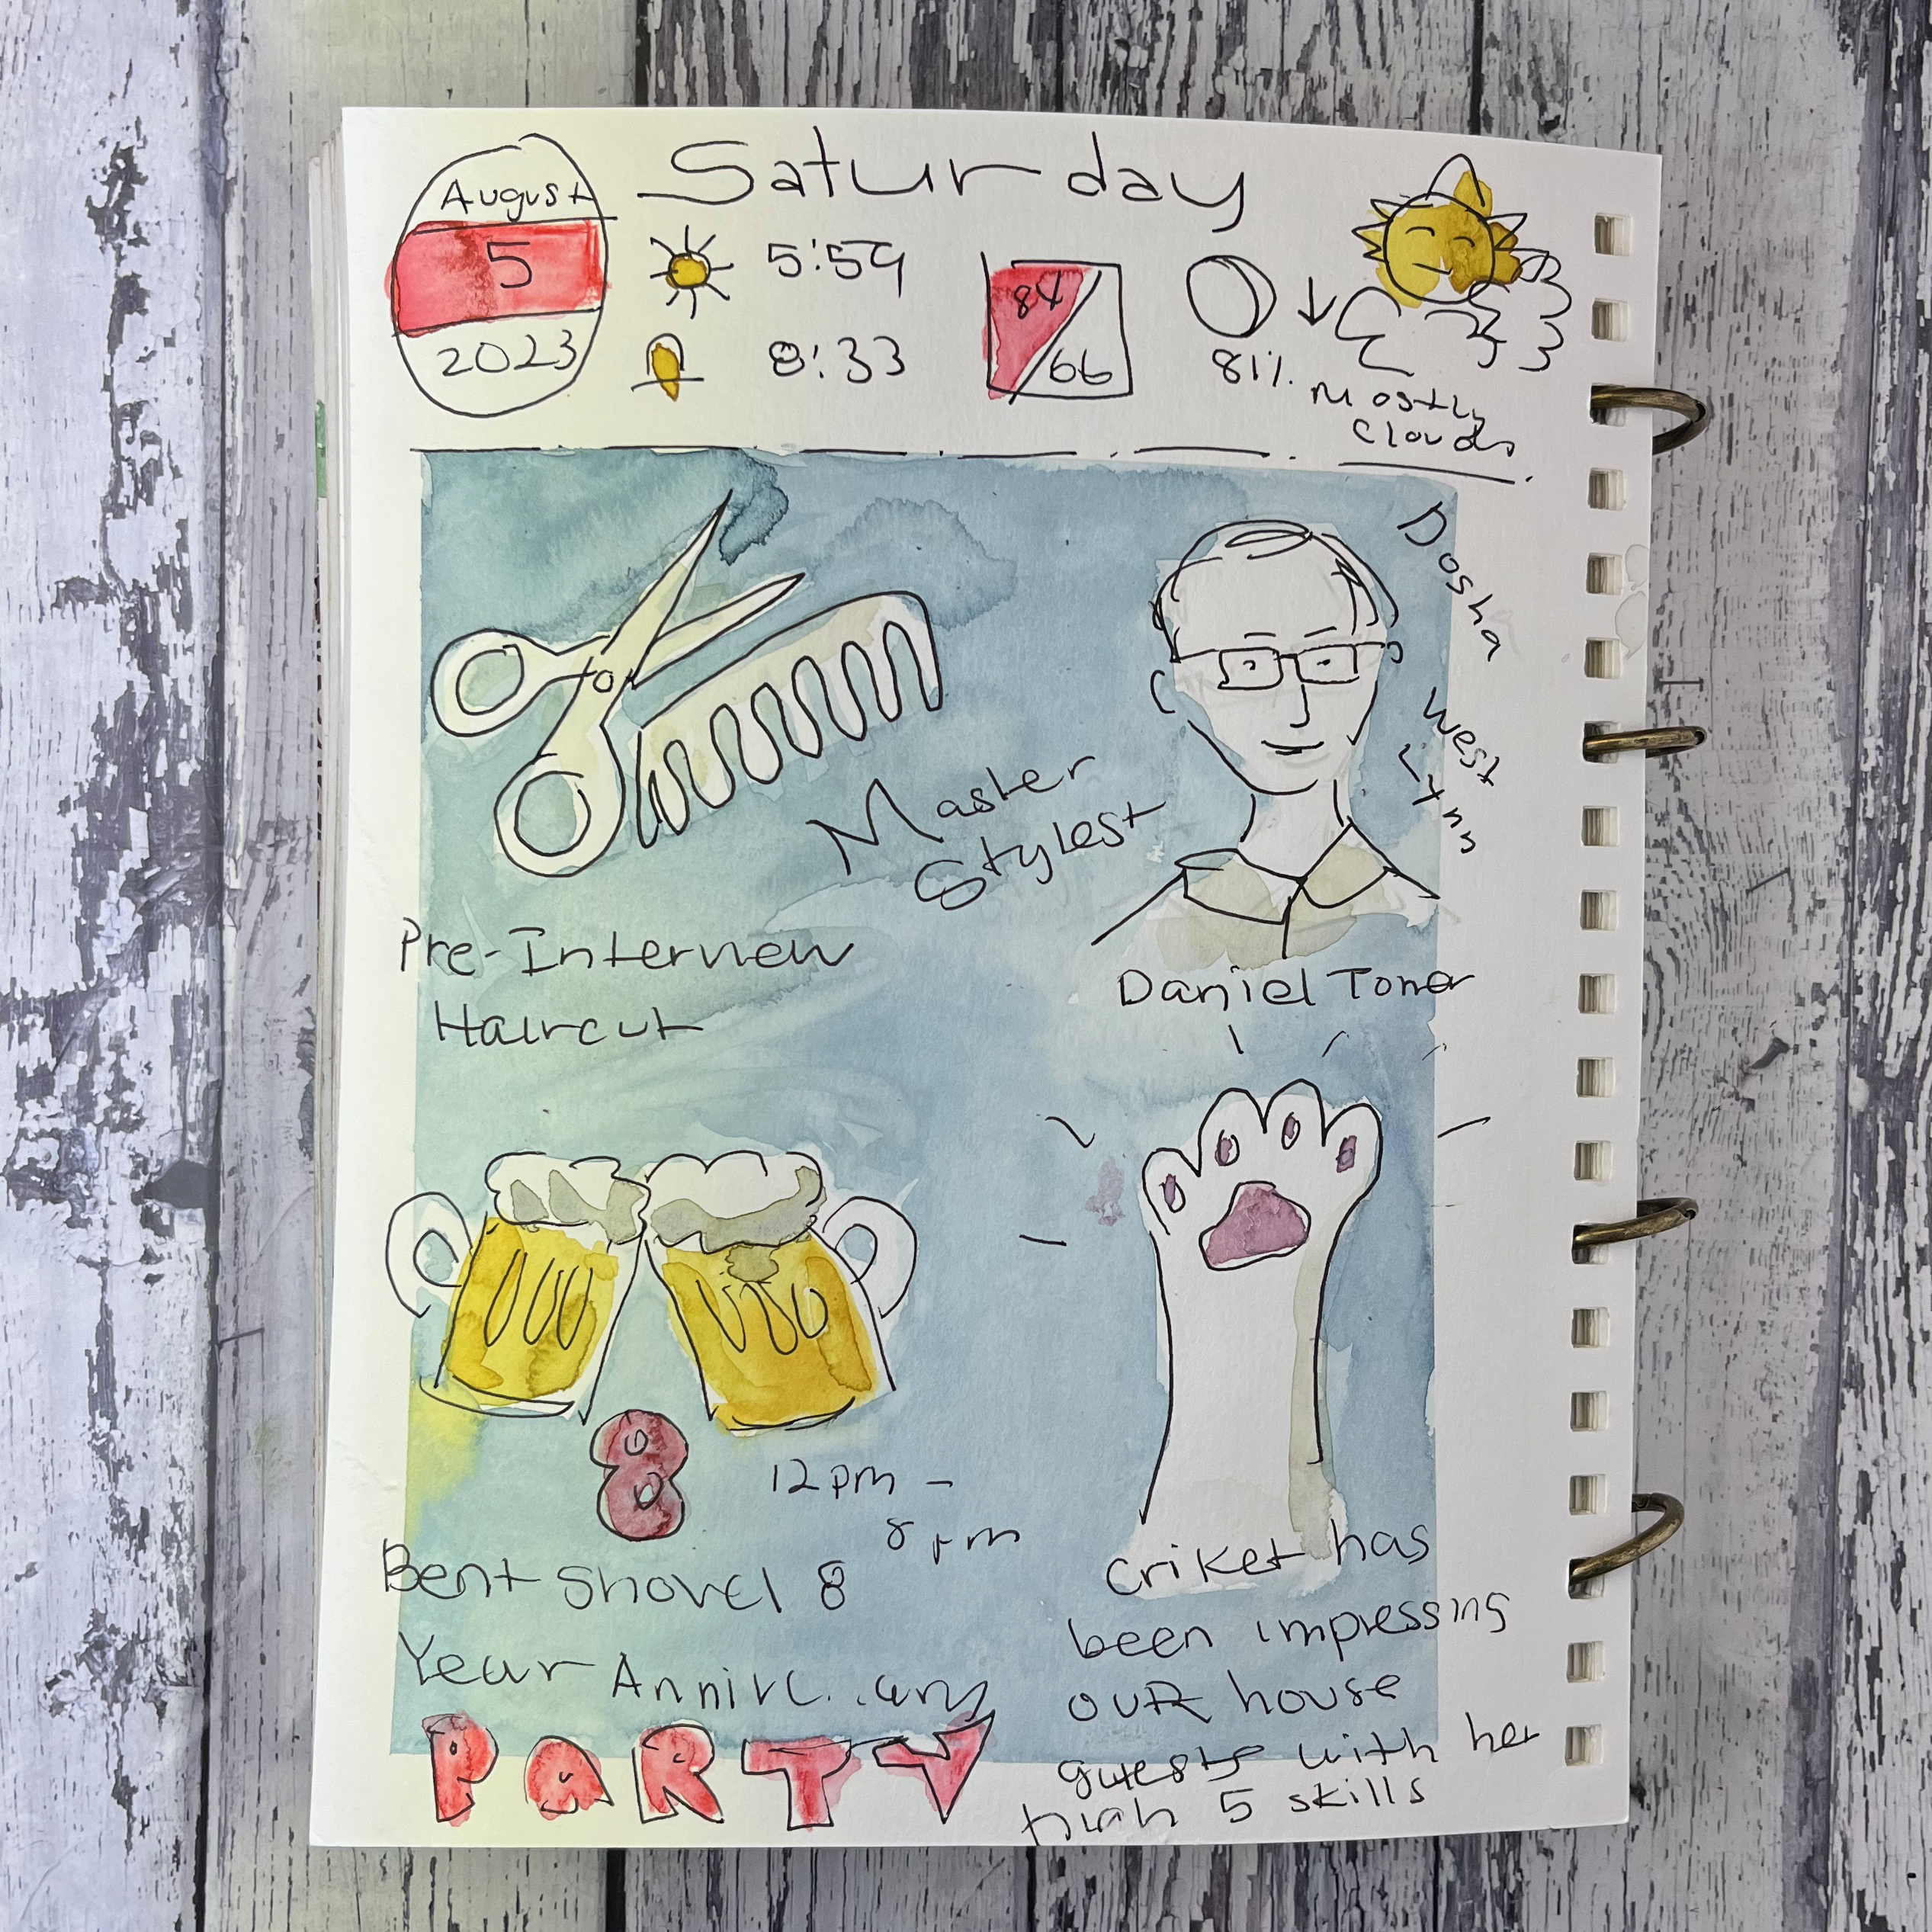 August
5
2023
Saturday
5:59
8:33
84
66
81%
Mostly
Clouds
Dosha
West
Lynn
Master
Stylest
Pre-Interview
Haircut
Daniel
8
12pm -
8pm
Bent Shovel 8
Year
PARTY
Criket has
been impressing
our house
guests with her
high 5 skills